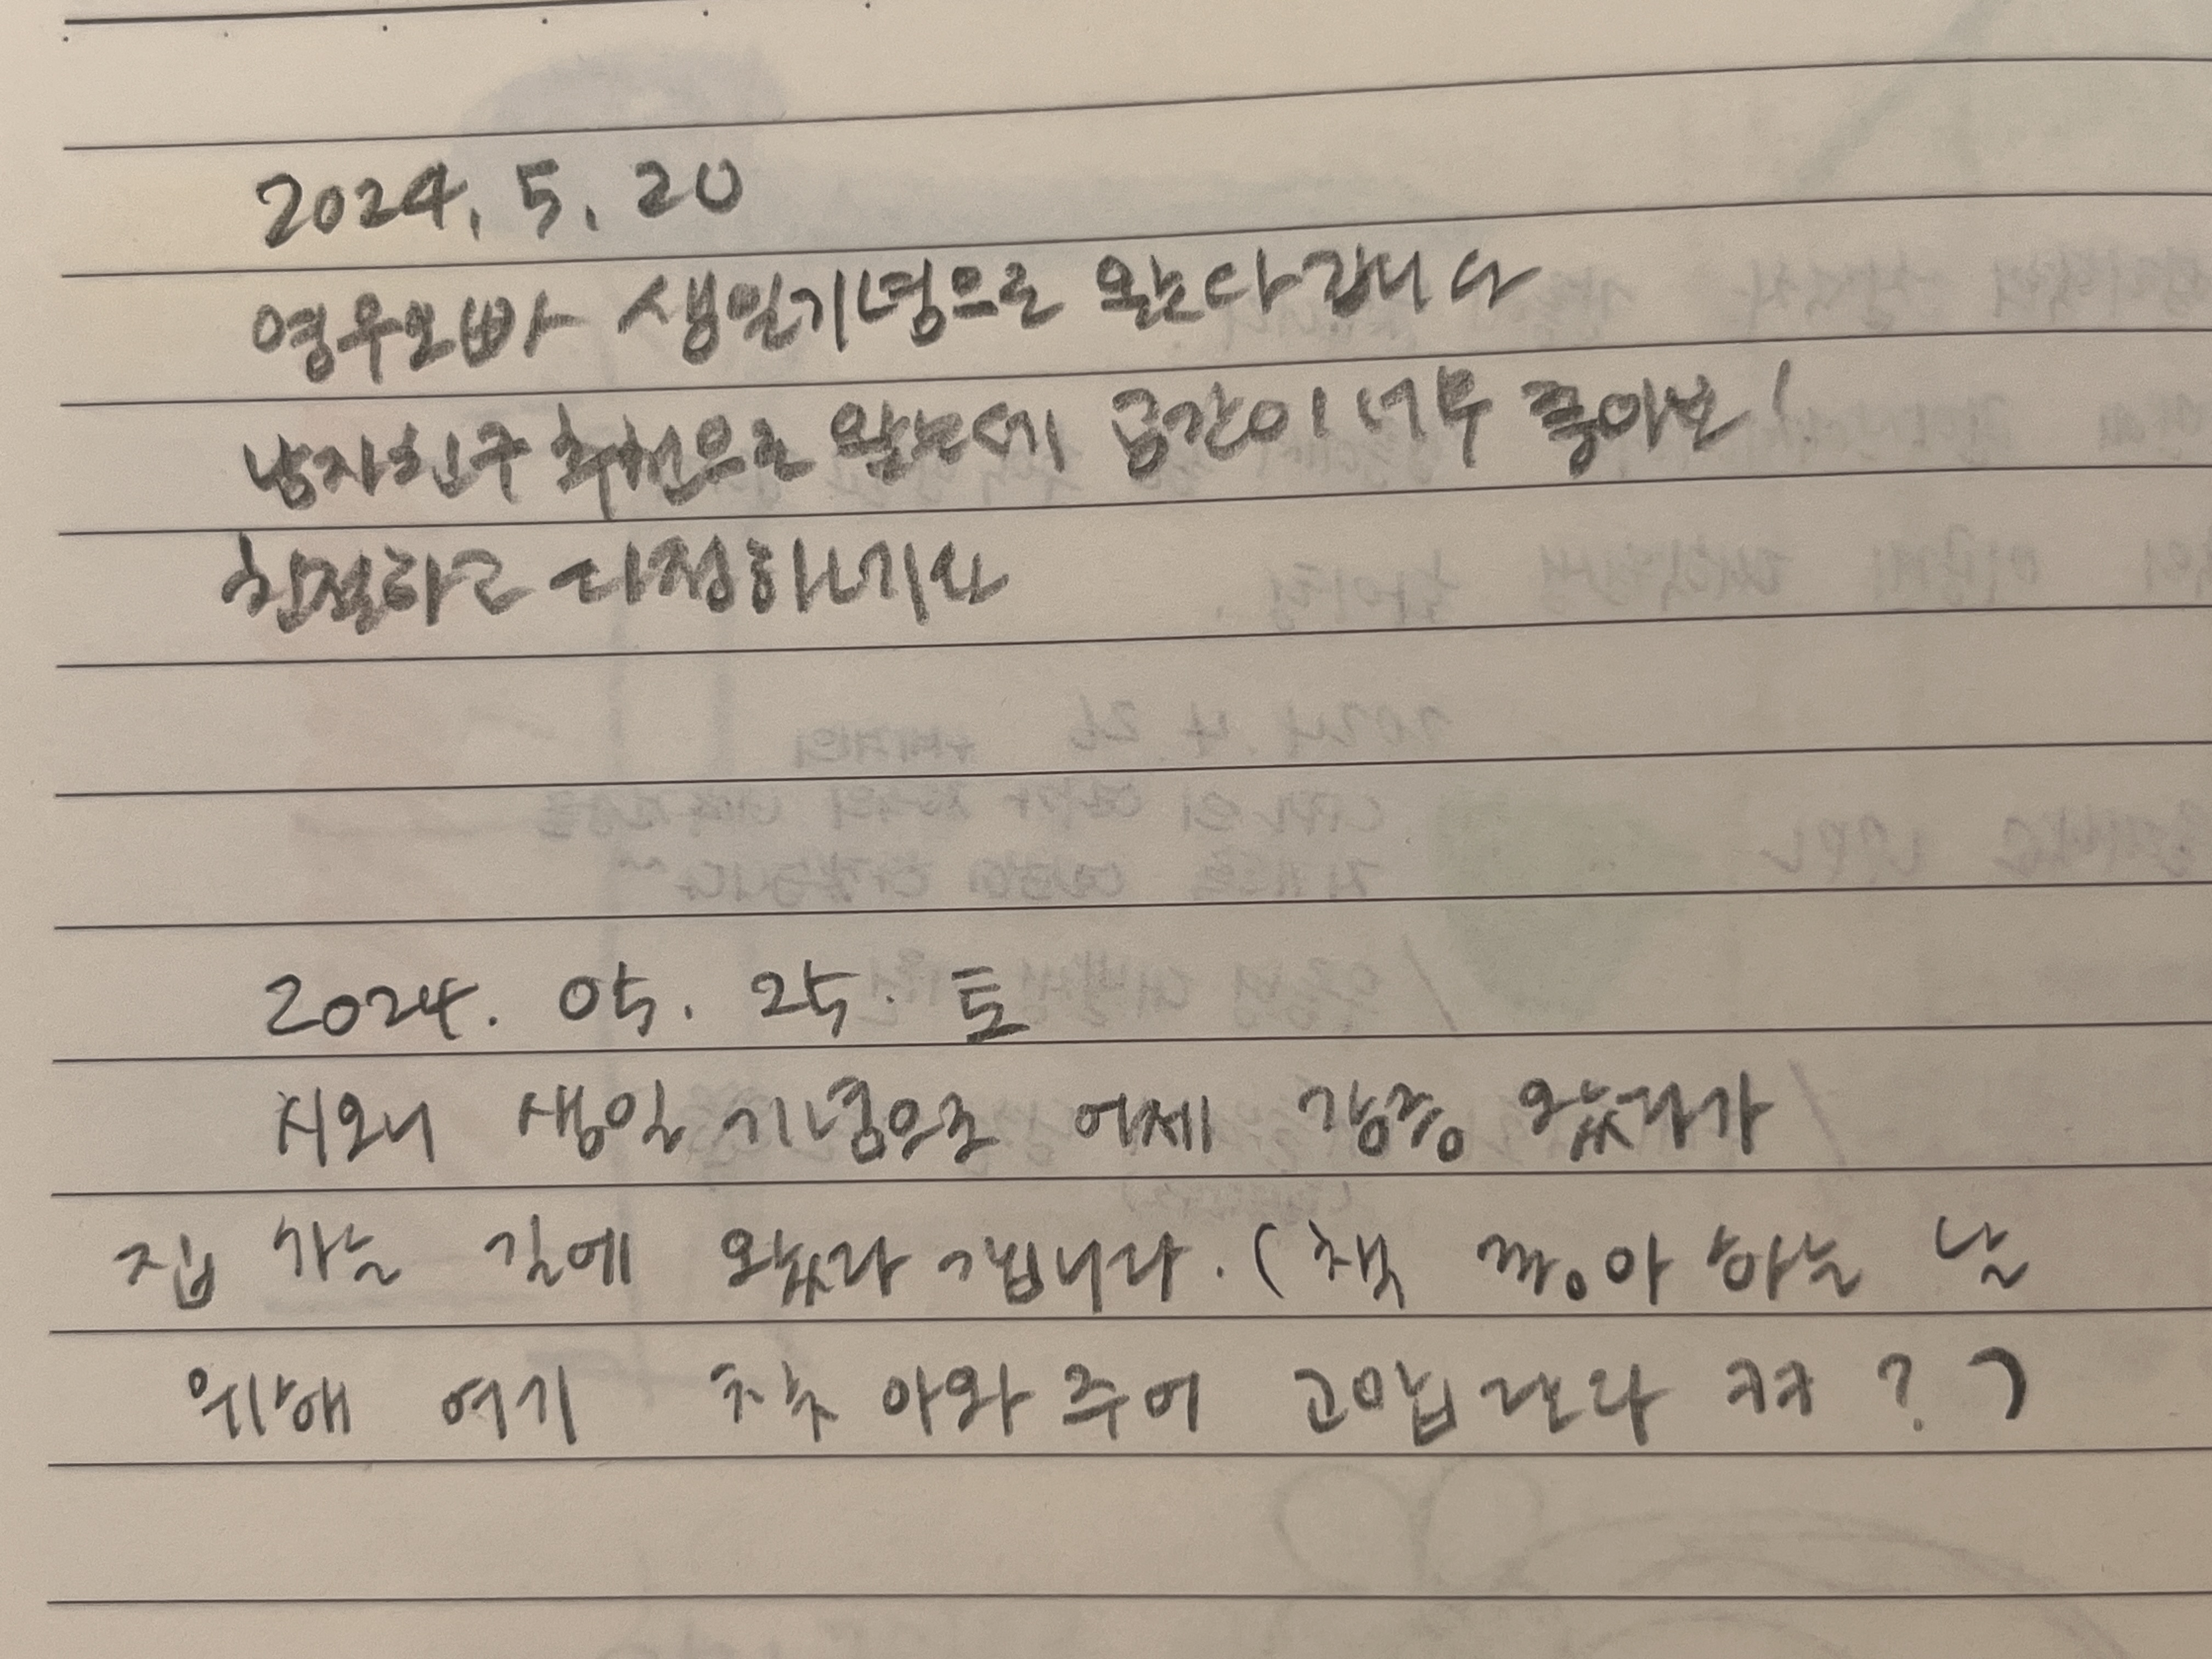 2024. 5. 20
영우오빠 생일기념으로 왔다갑니다
남자친구 추천으로 왔는데 공간이 너무 좋아보!
친절하고 다정하네요
2024. 05. 25. 토
시오니 생일 기념으로 어제 강릉 왔다가
집 가는 길에 왔다 갑니다. (책 좋아 하는 날
위해 여기 찾아와 주어 고맙단다 ㅋㅋ?)